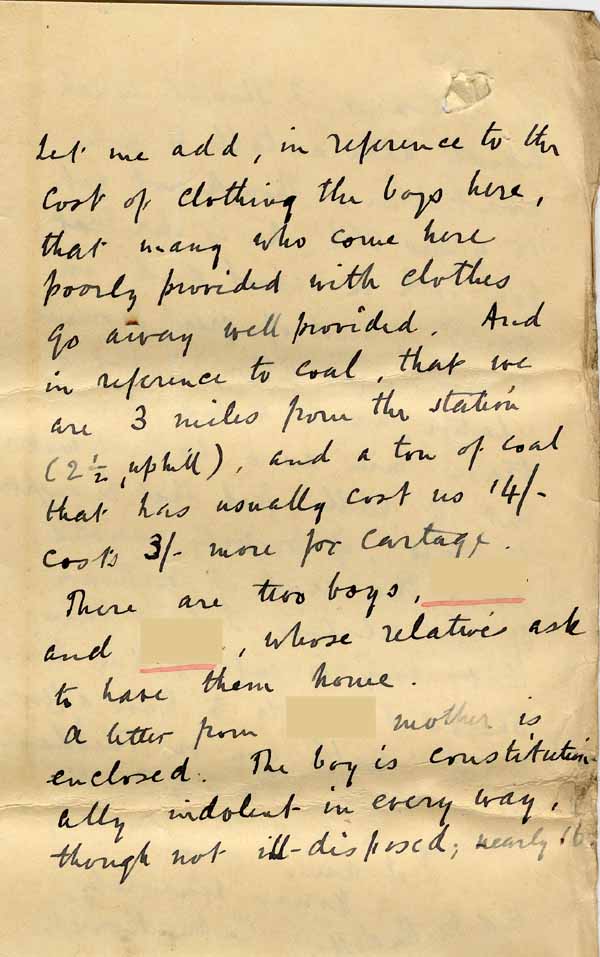 Let me add, in reference to the
cost of clothing the boys here,
that many who come here
poorly provided with clothes
go away well provided. And
in reference to coal, that we
are 3 miles from the station
(2½ uphill), and a ton of coal
that has usually cost us 14/-
costs 3/- more for cartage.
There are two boys,
and , whose relatives ask
to have them home.
A letter from mother is
enclosed. The boy is constitution-
ally indolent in every way,
though not ill-disposed; nearly 16.